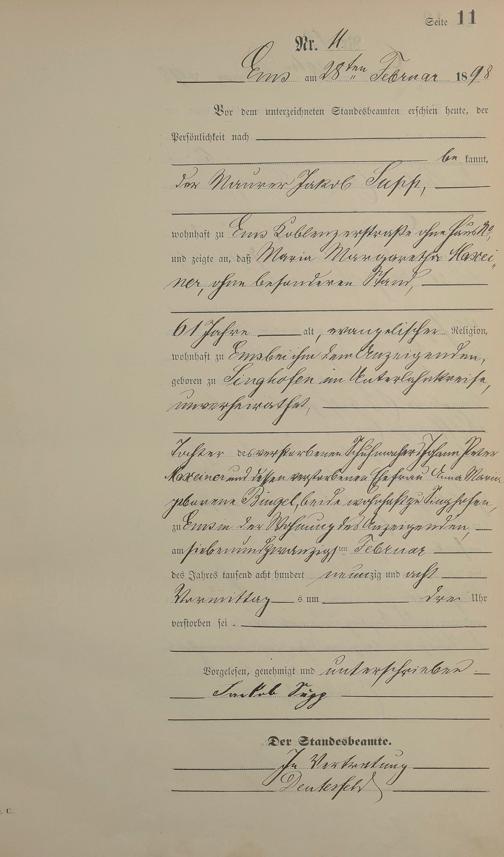 Seite 11
Nr. 11
Ems am 28ten Februar 1898
Vor dem unterzeichneten Standesbeamten erschien heute, der
Persönlichkeit nach
be kannt,
der Maurer Jakob Supp,
wohnhaft zu Ems Koblenzerstraße ohne Haus No,
und zeigte an, daß Maria Margaretha Maxei-
ner, ohne besonderen Stand,
61 Jahre alt, evangelischer Religion,
wohnhaft zu Ems bei ihm dem Anzeigenden,
geboren zu Singhofen im Unterlahnkreise,
unverheirathet,
Tochter des verstorbenen Schuhmachers Johann Peter
Maxeiner und dessen verstorbenen Ehefrau Anna Maria
geborene Bingel, beide wohnhaft zu Singhofen,
zu Ems in der Wohnung des Anzeigenden,
am siebenundzwanzigsten Februar
des Jahres tausend acht hundert neunzig und acht
Vormittag s um drei Uhr
verstorben sei.
Vorgelesen, genehmigt und unterschrieben
Jackob Supp
Der Standesbeamte.
In Vertretung